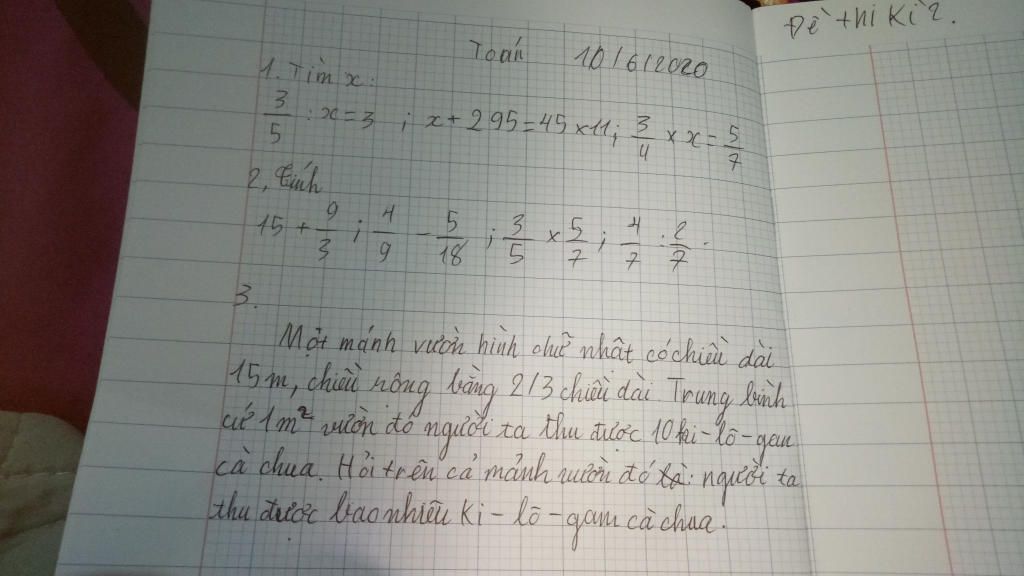 Đề thi Kì 2.
Toán 10/6/2020
1. Tìm x:
3/5 : x = 3 ; x + 295 = 45 x 11 ; 3/4 x x = 5/7
2, Tính
15 + 9/3 ; 4/9 - 5/18 ; 3/5 x 5/7 ; 4/7 : 2/7 .
3.
Một mảnh vườn hình chữ nhật có chiều dài
15m, chiều rộng bằng 2/3 chiều dài. Trung bình
cứ 1m² vườn đó người ta thu được 10 ki-lô-gam
cà chua. Hỏi trên cả mảnh vườn đó người ta
thu được bao nhiêu ki-lô-gam cà chua.